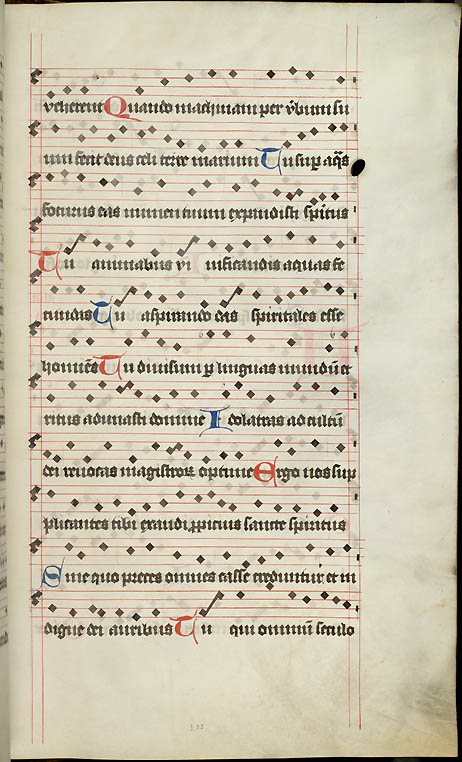 veherent Quando machinam per v̄bum su
um fecit deus celi terre marium Tu sup̄ aq̄s
foturus eas numen tuum expandisti spiritus
Tu animabus vi uificandis aquas fe
cundis Tu aspirando das spiritales esse
homines Tu diuisum p̄ linguas mundū et
ritus adunasti domine Idolatras ad cultū
dei reuocas magistroꝝ optime Ergo nos sup
plicantes tibi exaudi ꝓpicius sancte spiritus
Sine quo preces omnes casse creduntur et in
digne dei auribus Tu qui omniū seculo